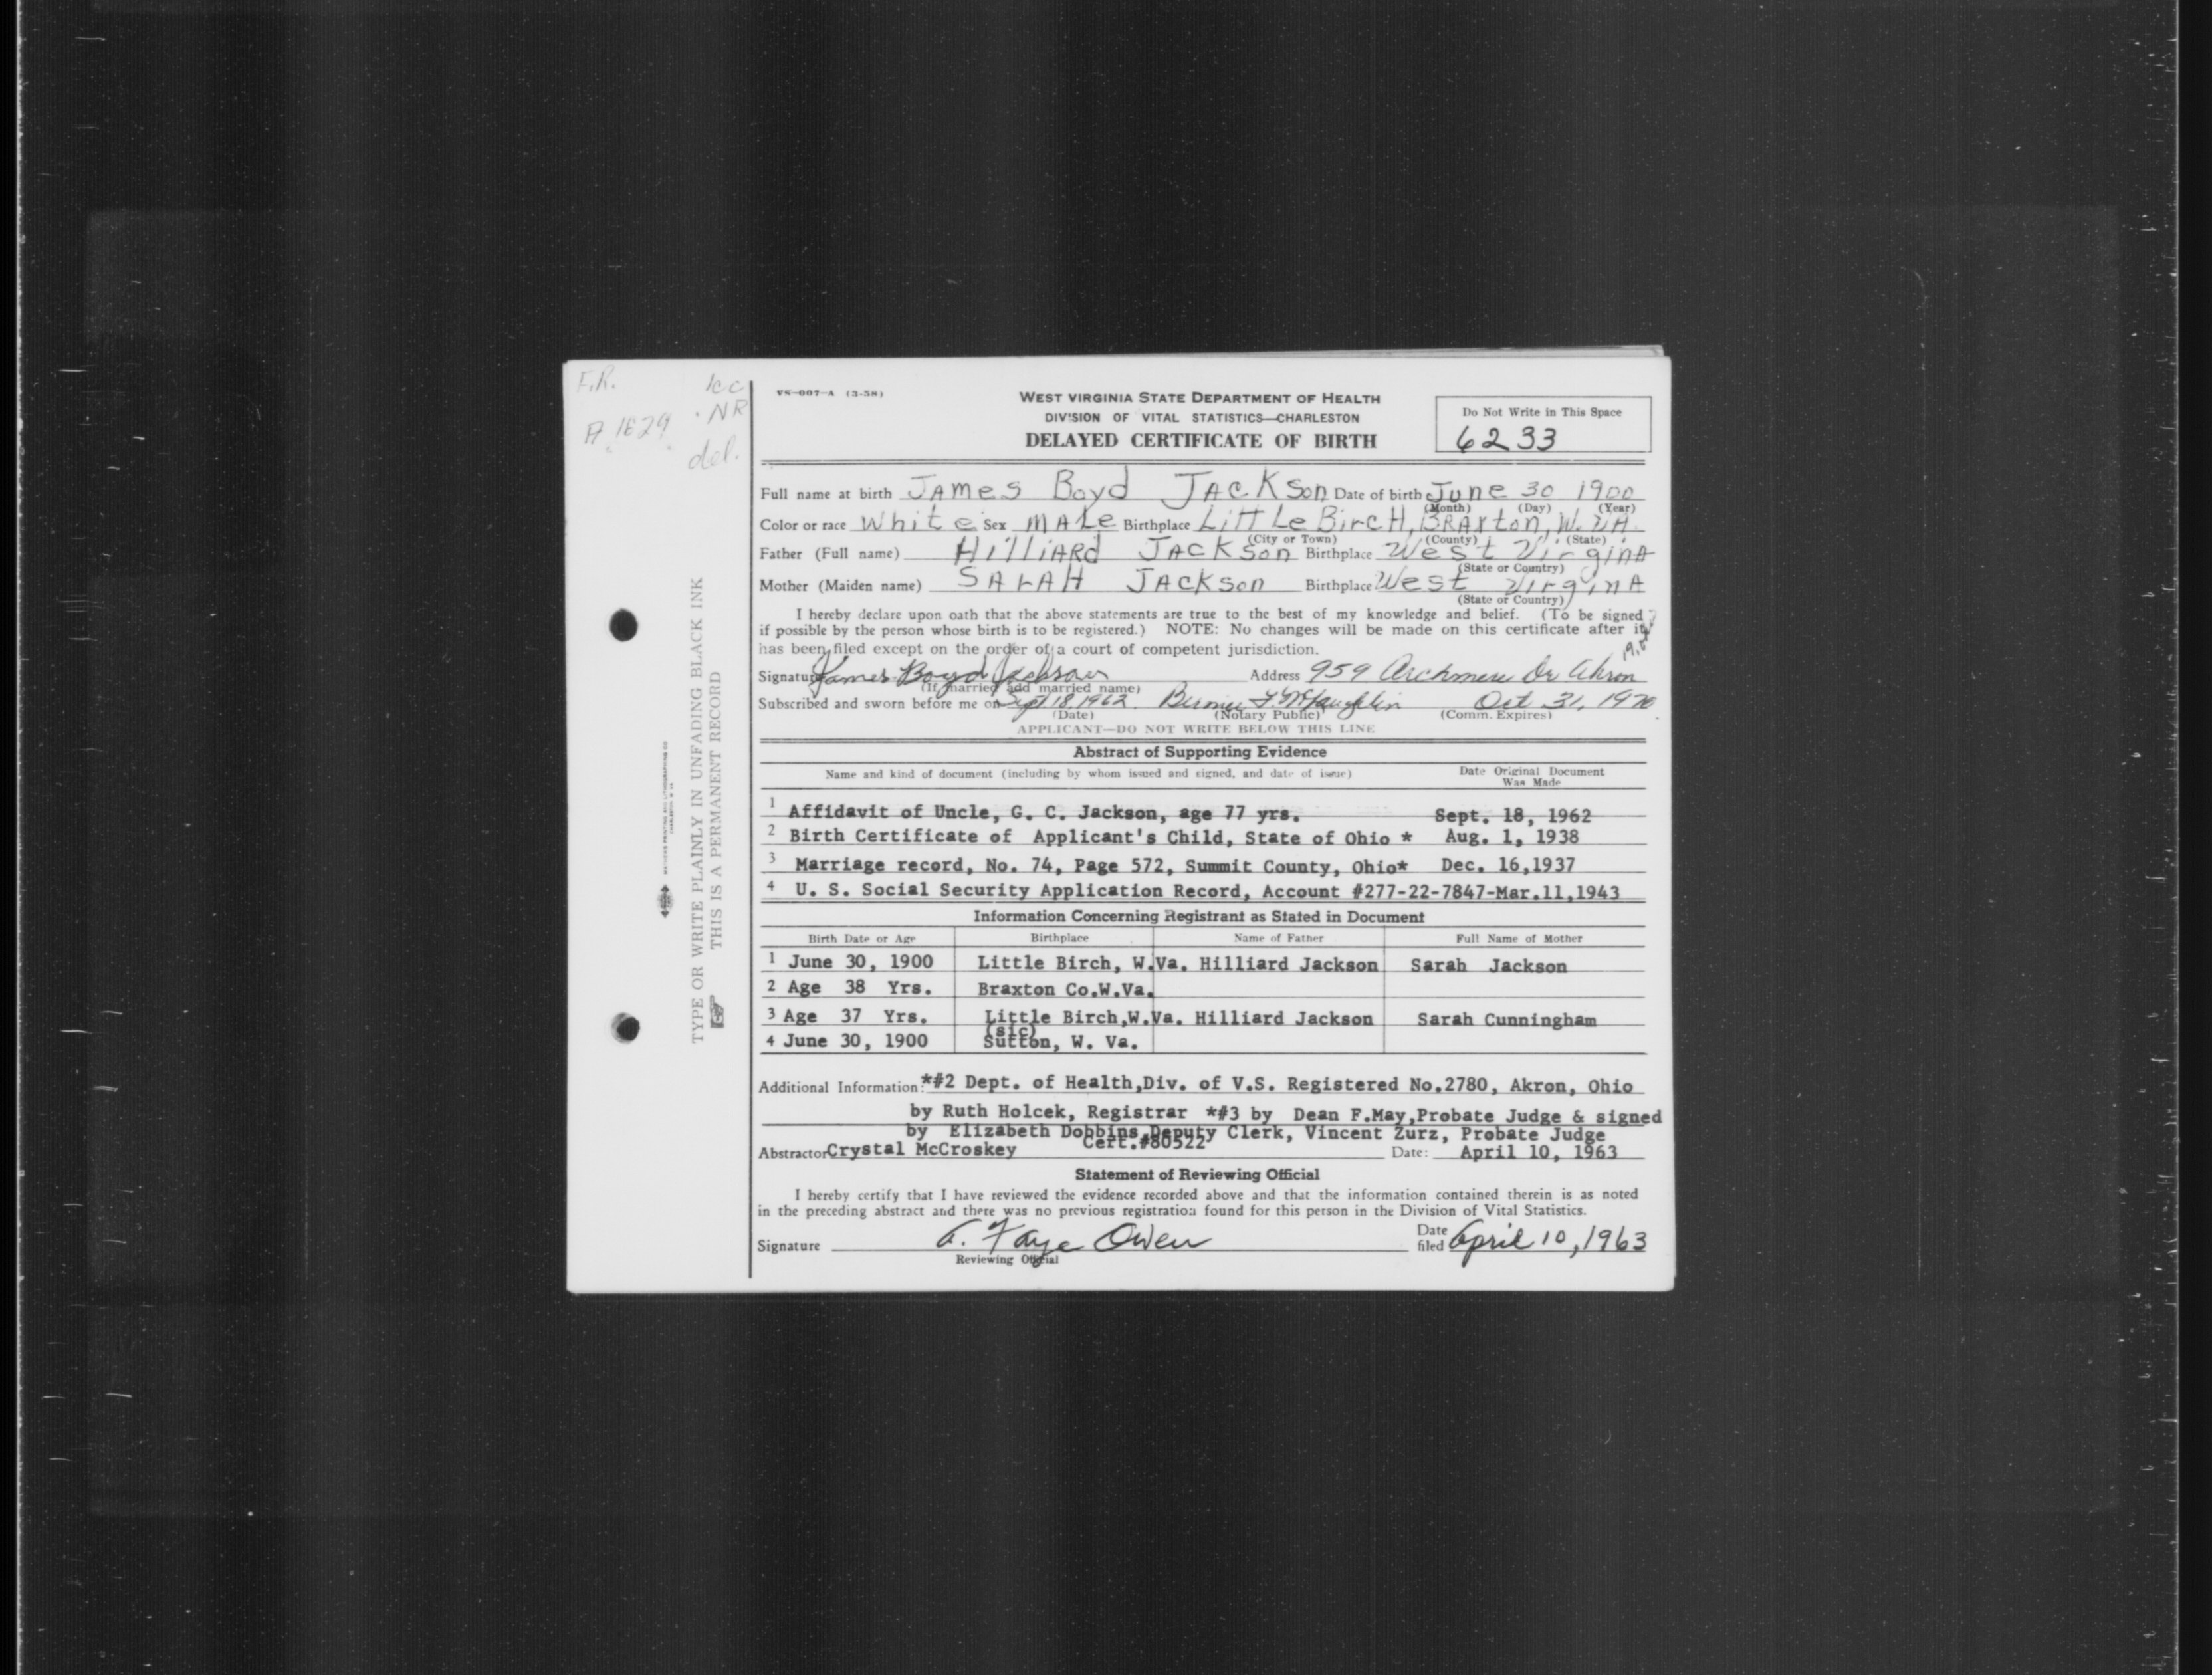 F.R. 1cc
A 1829 . NR
del.
VS-007-A (3-58)
WEST VIRGINIA STATE DEPARTMENT OF HEALTH
DIVISION OF VITAL STATISTICS—CHARLESTON
DELAYED CERTIFICATE OF BIRTH
Do Not Write in This Space
6233
TYPE OR WRITE PLAINLY IN UNFADING BLACK INK
THIS IS A PERMANENT RECORD
Full name at birth JAmes Boyd JACKSon Date of birth June 30 1900
(Month) (Day) (Year)
Color or race White Sex MALe Birthplace LittLe BircH, BRAxton, W. VA.
(City or Town) (County) (State)
Father (Full name) HilliARd JACKSon Birthplace West VirginA
(State or Country)
Mother (Maiden name) SArAH JACKSon Birthplace West VirginA
(State or Country)
I hereby declare upon oath that the above statements are true to the best of my knowledge and belief. (To be signed
if possible by the person whose birth is to be registered.) NOTE: No changes will be made on this certificate after it
has been filed except on the order of a court of competent jurisdiction.
Signature James Boyd Jackson Address 959 Archmere Dr Akron
(If married add married name)
Subscribed and sworn before me on Sept 18, 1962. Bernice F. McLaughlin Oct 31, 1970
(Date) (Notary Public) (Comm. Expires)
APPLICANT—DO NOT WRITE BELOW THIS LINE
Abstract of Supporting Evidence
Name and kind of document (including by whom issued and signed, and date of issue) Date Original Document
Was Made
1 Affidavit of Uncle, G. C. Jackson, age 77 yrs. Sept. 18, 1962
2 Birth Certificate of Applicant's Child, State of Ohio * Aug. 1, 1938
3 Marriage record, No. 74, Page 572, Summit County, Ohio* Dec. 16,1937
4 U. S. Social Security Application Record, Account #277-22-7847-Mar.11,1943
Information Concerning Registrant as Stated in Document
Birth Date or Age Birthplace Name of Father Full Name of Mother
1 June 30, 1900 Little Birch, W.Va. Hilliard Jackson Sarah Jackson
2 Age 38 Yrs. Braxton Co.W.Va.
3 Age 37 Yrs. Little Birch,W.Va. Hilliard Jackson Sarah Cunningham
(sic)
4 June 30, 1900 Sutton, W. Va.
Additional Information: *#2 Dept. of Health,Div. of V.S. Registered No.2780, Akron, Ohio
by Ruth Holcek, Registrar *#3 by Dean F.May,Probate Judge & signed
by Elizabeth Dobbins,Deputy Clerk, Vincent Zurz, Probate Judge
Cert.#80522
Abstractor Crystal McCroskey Date: April 10, 1963
Statement of Reviewing Official
I hereby certify that I have reviewed the evidence recorded above and that the information contained therein is as noted
in the preceding abstract and there was no previous registration found for this person in the Division of Vital Statistics.
Signature A. Faye Owen Date filed April 10, 1963
Reviewing Official